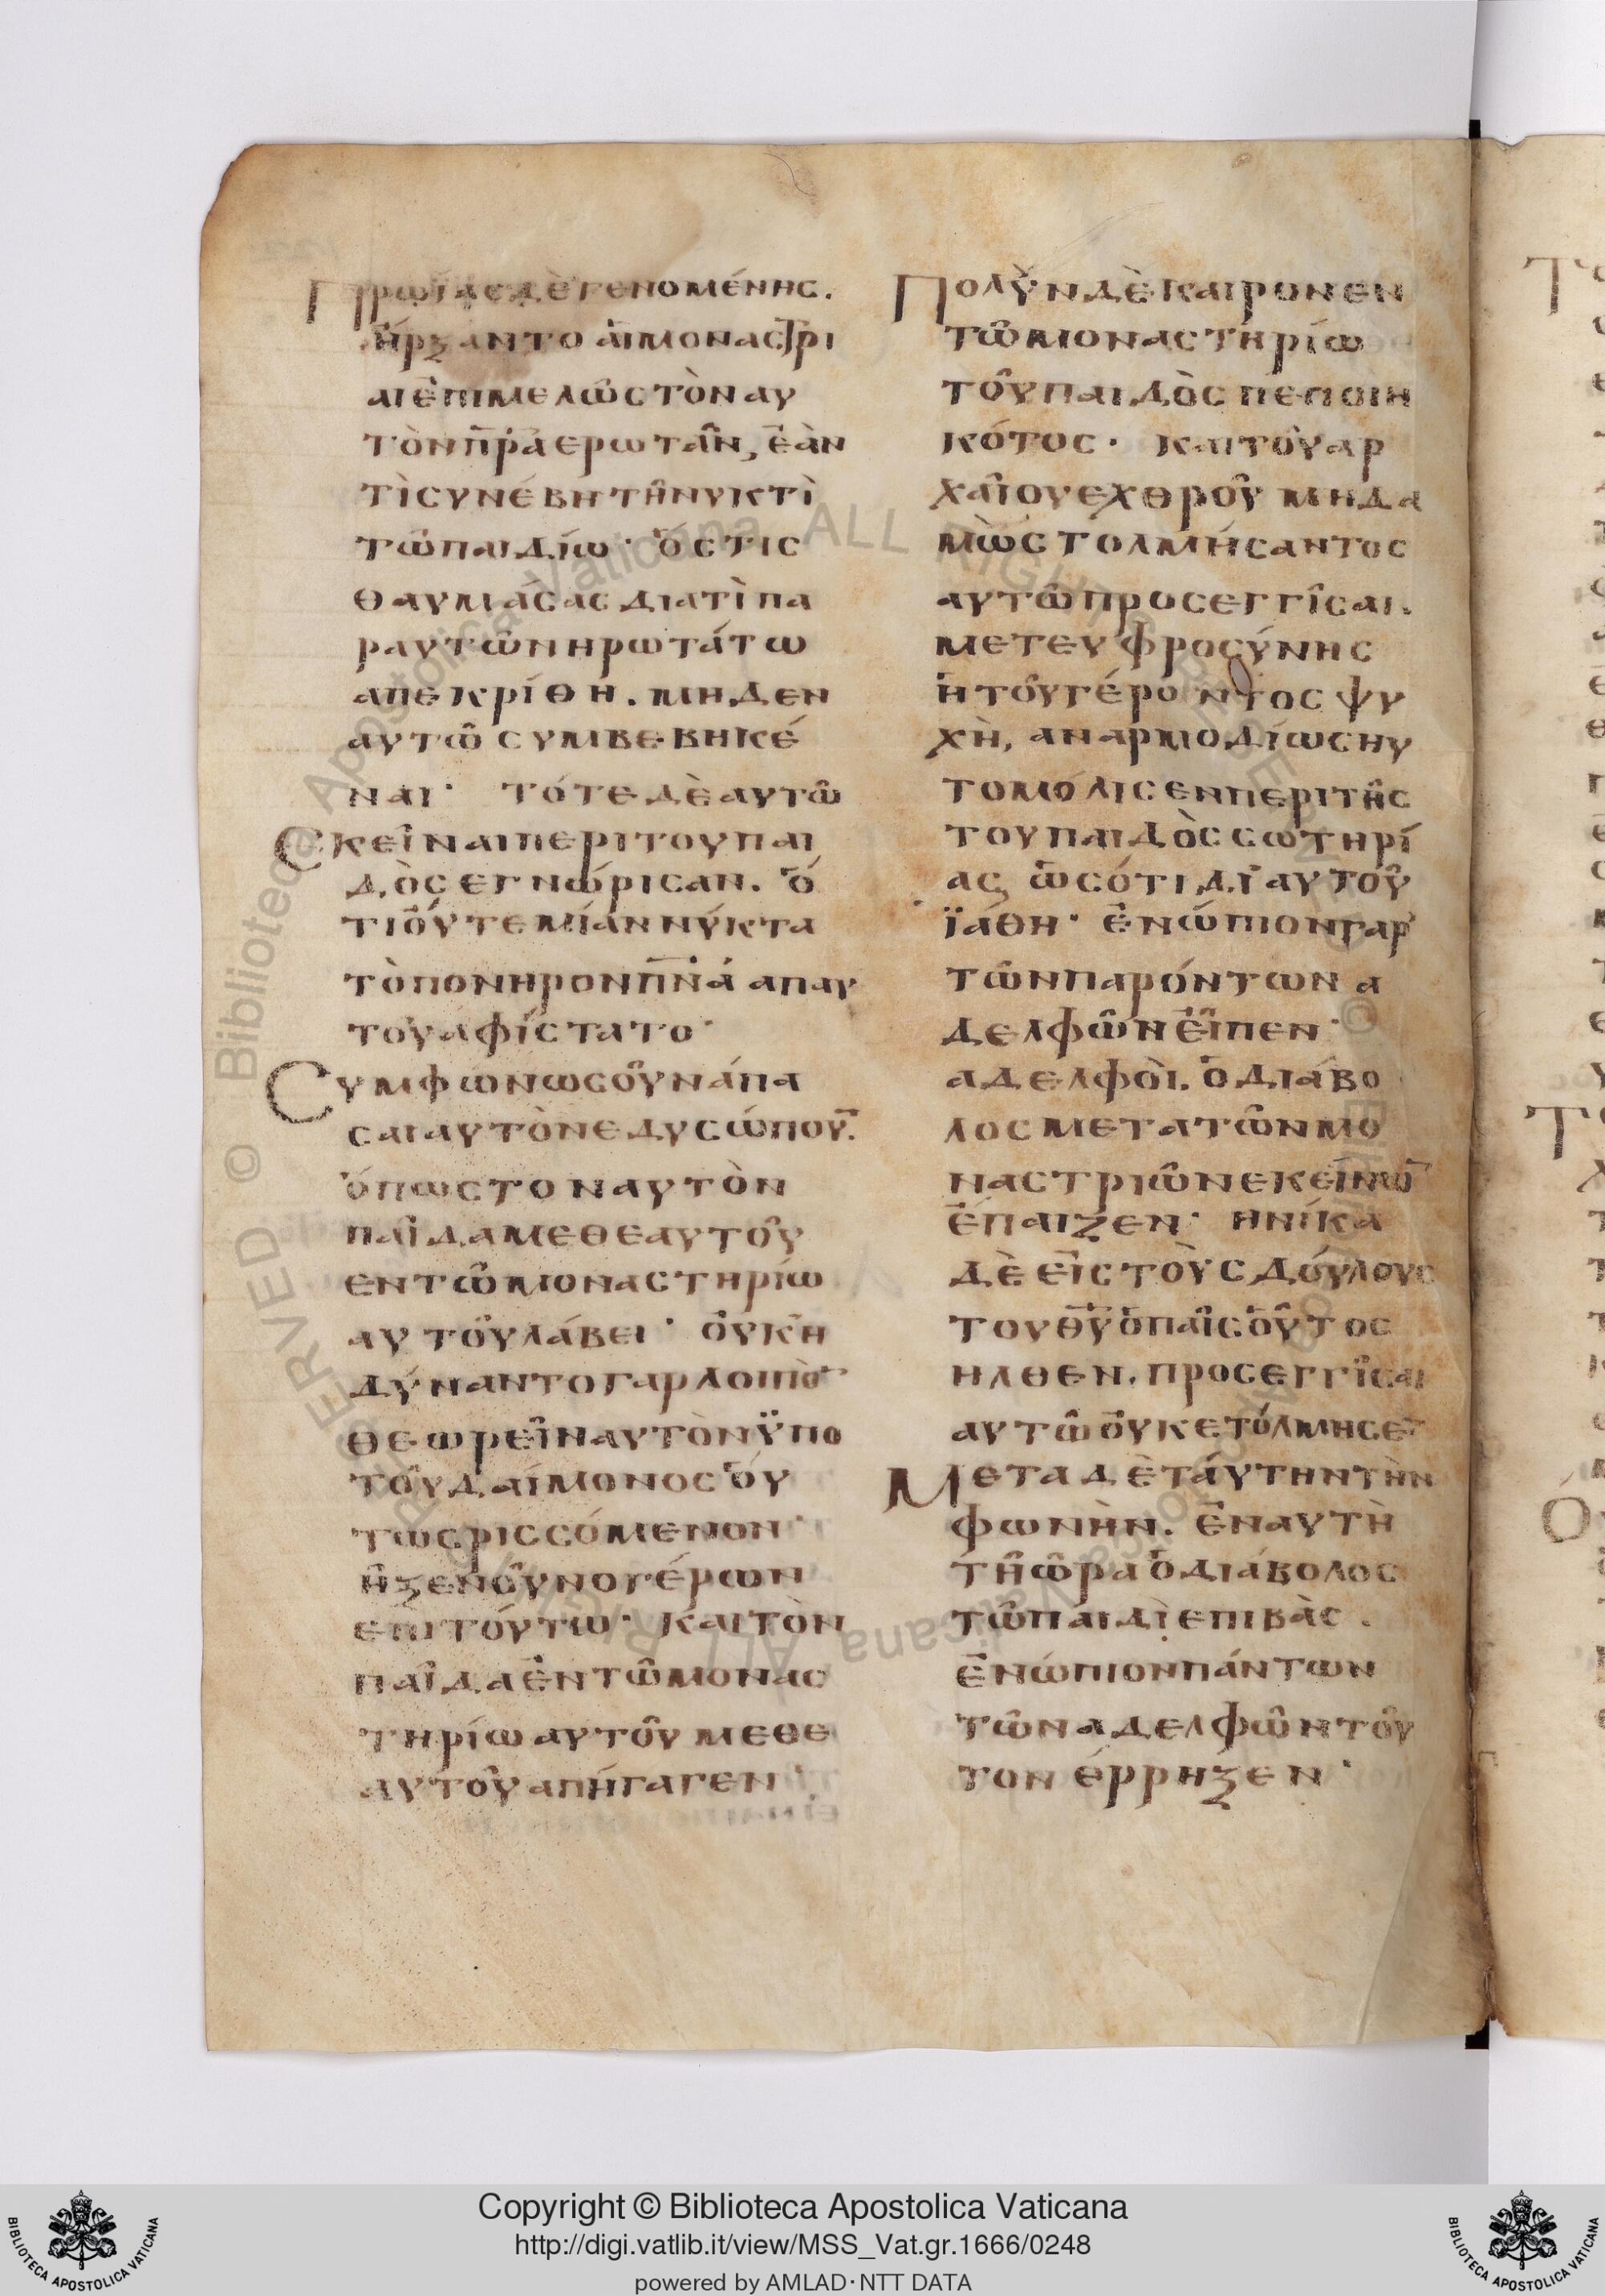 Πρωΐας δὲ γενομένης.
ἤρξαντο ἁι μοναςτρι
αι ἐπιμελῶς τὸν αυ
τὸν π̅ρ̅α̅ ερωτᾶν, ἐὰν
τὶ συνέβη τῆ νυκτὶ
τῶ παιδίω· ὅς τις
θαυμάσας διατὶ πα
ρ αυτῶν ηρωτάτω
απεκρίθη. μηδεν
αυτῶ συμβεβηκέ
ναι· τότε δὲ αυτῶ
Εκεῖναι περι του παι
δὸς εγνώρισαν. ὅ
τι ὄυτε μίαν νύκτα
τὸ πονηρον π̅ν̅ά απ αυ
τοῦ αφίστατο·
Συμφωνως οὖν άπα
σαι αυτὸν εδυσώπου̅.
ὅπως τον αυτὸν
παῖδα μεθ εαυτοῦ
εν τῶ μοναστηρίω
αυτοῦ λάβει· ὀυκ ἠ
δύναντο γαρ λοιπὸ̅
θεωρεῖν αυτὸν ϋπο
τοῦ δαίμονος ὅυ
τως ρισσόμενον·
ῆξεν οῦν ο γέρων
επι τούτω· Και τὸν
παῖδα ἐν τῶ μονας
τηρίω αυτοῦ μεθ ε
αυτοῦ απήγαγεν·
Πολῢν δὲ καιρον εν
τῶ μοναστήρίω
τοῦ παιδὸς πεποιη
κότος· και τοῦ αρ
χαῖου εχθροῦ μηδα
μὼς τολμήσαντος
αυτῶ προσεγγῖσαι.
μετ ευφροσύνης
ἡ τοῦ γέροντος ψυ
χὴ, αναρμοδίως ηυ
τομόλισεν περι τῆς
του παιδὸς σωτηρί
ας ὡς ότι δι αυτοῦ
ϊάθη· ἐνώπιον γαρ
τῶν παρόντων α
δελφῶν εἶπεν·
αδελφὸι. ὁ διάβο
λος μετα τῶν μο
ναστριῶν εκείνω̅
ἔπαιζεν· ηνίκα
δὲ εἰς τοὺς δούλους
του θ̅υ̅ ὁ παῖς οὗτος
ηλθεν. προσεγγῖσαι
αυτῶ ὀυκ ετόλμησε̅
Μετα δὲ τάυτην τὴν
φωνὴν. ἐν αυτὴ
τῆ ὥρα ὁ διάβολος
τῶ παιδὶ επιβὰς.
ἐνώπιον πάντων
τῶν αδελφῶν τοῦ
τον έρρηξεν·
Copyright © Biblioteca Apostolica Vaticana
http://digi.vatlib.it/view/MSS_Vat.gr.1666/0248
powered by AMLAD·NTT DATA